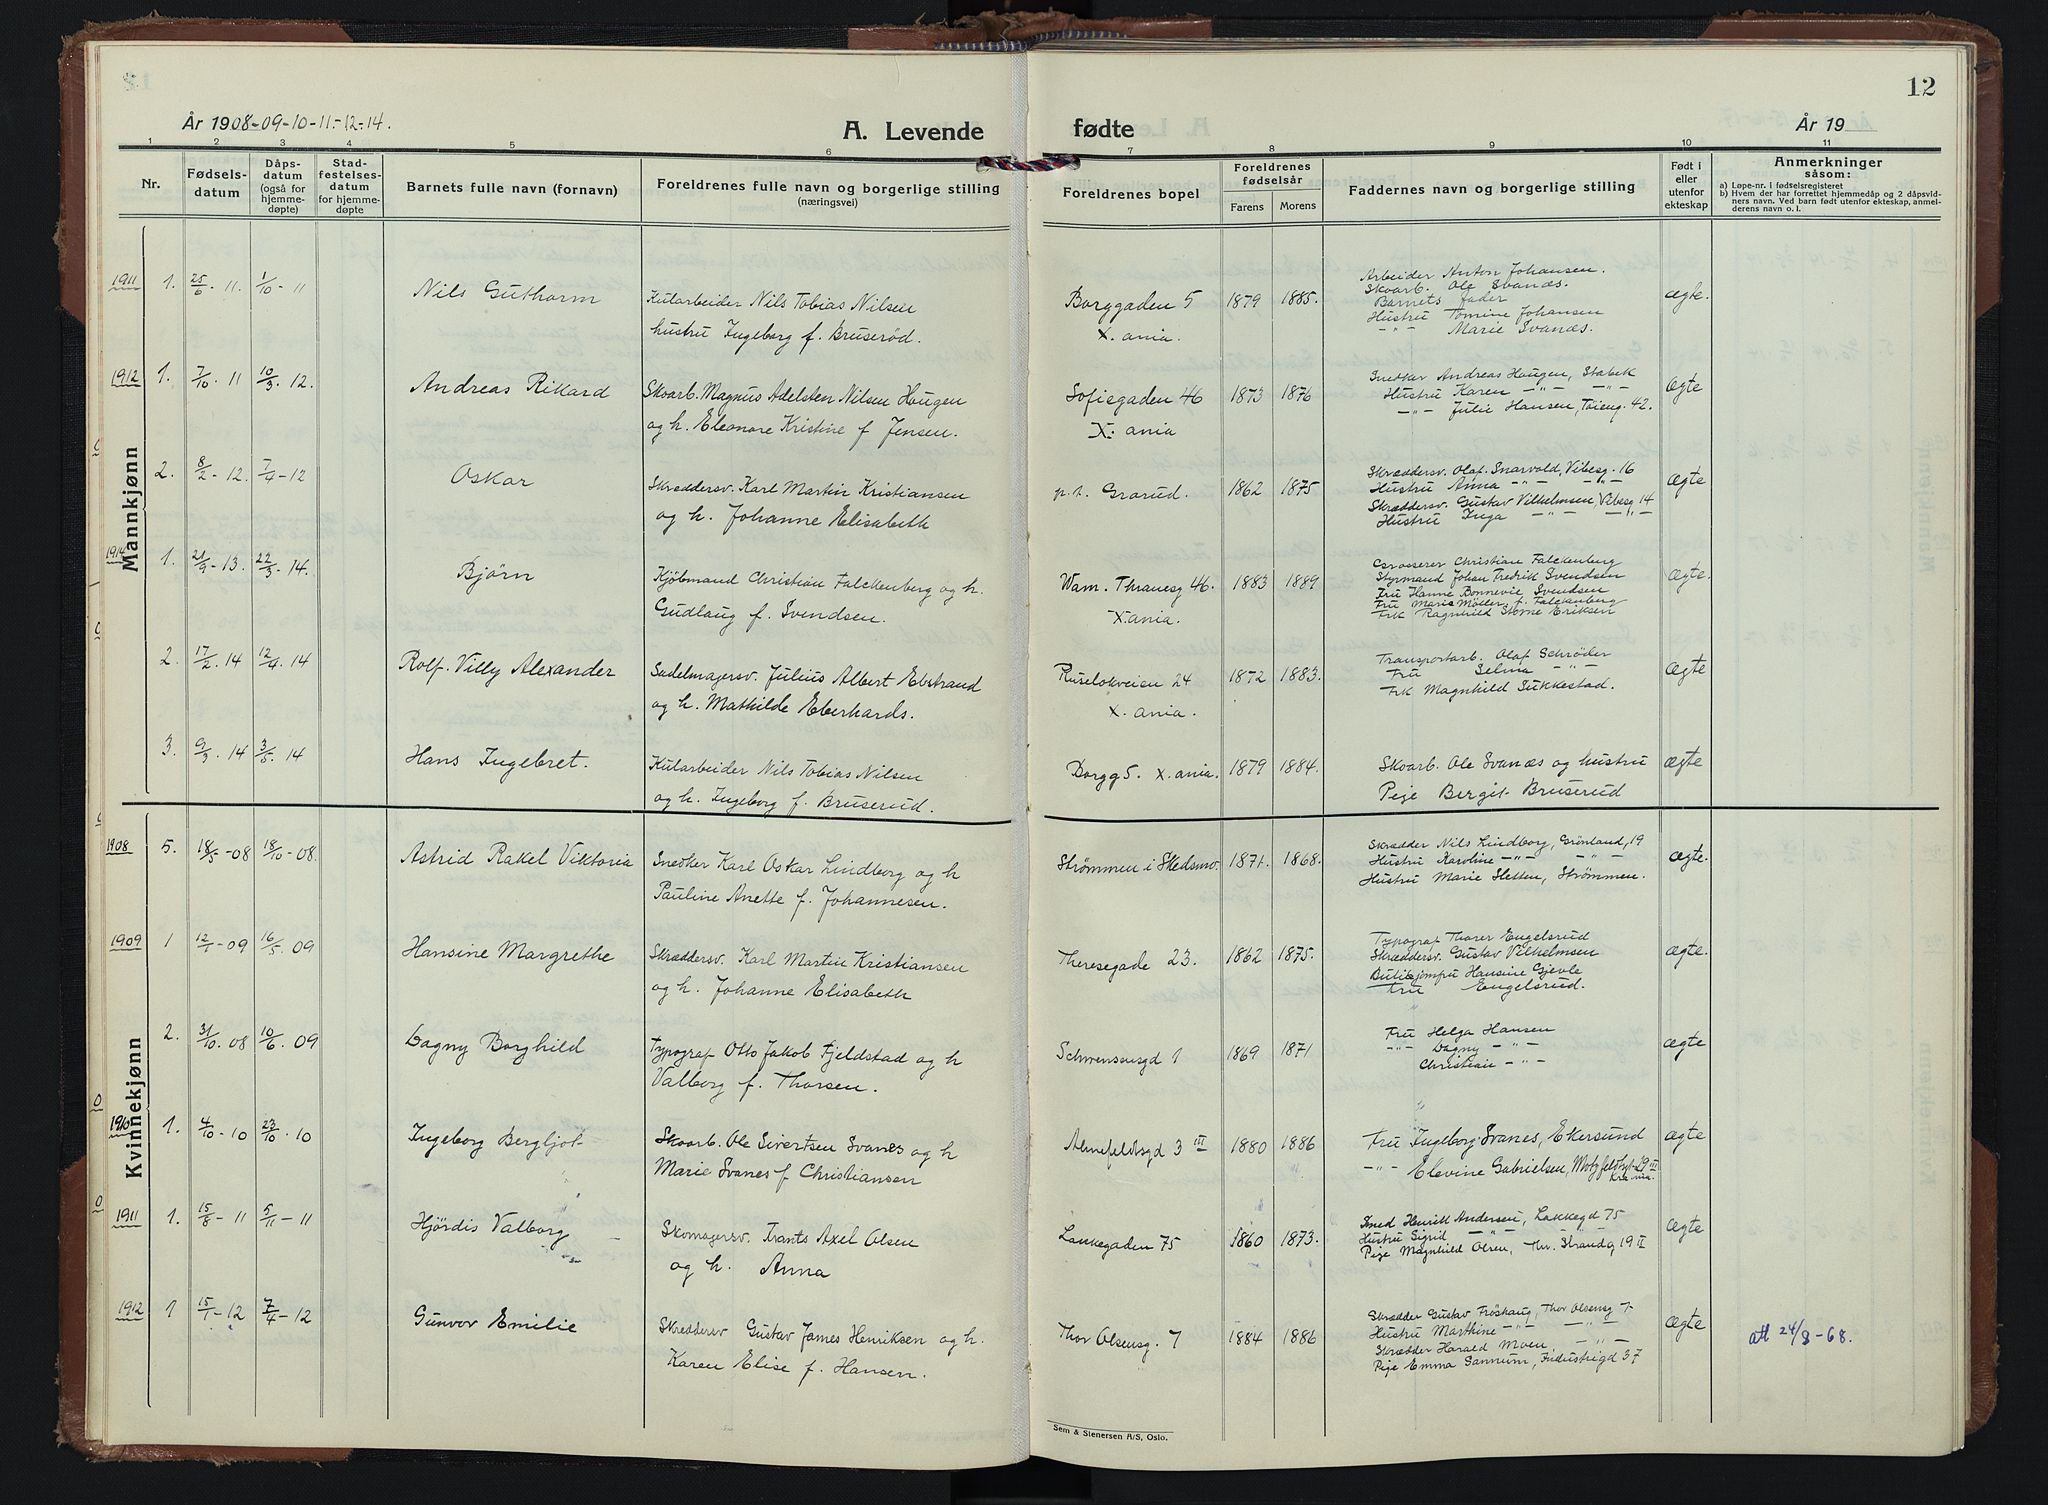 12
År 1908-09-10-11-12-14.
A. Levende
fødte
År 19
1 2 3 4 5 6 7 8 9 10 11
Nr.
Fødselsdatum
Dåpsdatum (også for hjemmedøpte)
Stadfestelsesdatum for hjemmedøpte
Barnets fulle navn (fornavn)
Foreldrenes fulle navn og borgerlige stilling
(næringsvei)
Foreldrenes bopel
Foreldrenes fødselsår
Farens Morens
Faddernes navn og borgerlige stilling
Født i eller utenfor ekteskap
Anmerkninger
såsom:
a) Løpe-nr. i fødselsregisteret
b) Hvem der har forrettet hjemmedåp og 2 dåpsvidners navn. Ved barn født utenfor ekteskap, anmelderens navn o. l.
Mannkjønn
1911 1. 25/6 - 11. 1/10 - 11 Nils Guthorm
Kularbeider Nils Tobias Nilsen
hustru Ingeborg f. Bruserød.
Borggaden 5
X.ania.
1879 1885.
Arbeider Anton Johansen.
Skoarb. Ole Svanæs.
Barnets fader
Hustru Tomine Johansen
-"- Marie Svanæs.
ægte.
1912 1. 7/10 - 11 10/3 - 12. Andreas Rikard
Skoarb. Magnus Adelsten Nilsen Hougen
og h. Eleonore Kristine f. Jensen.
Sofiegaden 46
X.ania
1873 1876
Snedker Andreas Hougen, Stabek
Hustru Karen -"- -"-
-"- Julie Hansen, Tøieng. 42.
ægte
2. 8/2 - 12. 7/4 - 12 Oskar
Skræddersv. Karl Martin Kristiansen
og h. Johanne Elisabeth
p.t. Grorud.
1862 1875
Skræddersv. Olaf Snarvold, Vibesg. 16
Hustru Anna -"- -"-
Skræddersv. Gustav Vilhelmsen, Vibesg 14
Hustru Inga -"- -"-
ægte
1914 1. 21/9 - 13. 22/3 - 14. Bjørn
Kjøbmand Christian Falckenberg og h.
Gudlaug f. Svendsen.
Wam. Thranesg 46.
X.ania.
1883 1889
Grosserer Christian Falckenberg
Styrmand Johan Fredrik Svendsen
Fru Hanne Bonnevie Svendsen
Fru Marie Møller f. Falckenberg
Frk Ragnhild Eriksen
ægte.
2. 17/2 - 14 12/4 - 14 Rolf Villy Alexander
Sadelmagersv. Julius Albert Ebstrand
og h. Mathilde Eberhards.
Ruselokveien 24
X.ania.
1872 1883.
Transportarb. Olaf Schrøder
Fru Selma -"-
Frk Magnhild Sukkestad.
ægte
3. 9/3 - 14 3/5 - 14 Hans Ingebret.
Kularbeider Nils Tobias Nilsen
og h. Ingeborg f. Bruserud.
Borgg 5. X.ania.
1879 1884.
Skoarb. Ole Svanæs og hustru
Pige Bergit Bruserud
ægte
Kvinnekjønn
1908 5. 18/5 - 08 18/10 - 08. Astrid Rakel Viktoria
Snedker Karl Oskar Lindborg og h
Pauline Anette f. Johannesen.
Strømmen i Skedsmo.
1871. 1868.
Skrædder Nils Lindborg, Grønland, 19
Hustru Karoline -"- -"-
Hustru Marie Sletten, Strømmen.
ægte.
1909 1 12/1 - 09 16/5 - 09 Hansine Margrethe
Skræddersv. Karl Martin Kristiansen
og h. Johanne Elisabeth
Theresegade 23.
1862 1875.
Typograf Thorer Engelsrud
Skræddersv. Gustav Vilhelmsen
Butikjomfru Hansine Gjevle
Fru Engelsrud.
ægte.
2. 31/10 - 08 10/6 - 09 Dagny Borghild
Typograf Otto Jakob Fjeldstad og h
Valborg f. Thorsen.
Schwensensgd 1
1869 1871
Fru Helga Hansen
-"- Dagny -"-
Christian -"-
ægte
1910 1. 4/10 - 10 23/10 - 10 Ingeborg Bergljot
Skoarb. Ole Sivertsen Svanes og h
Marie Svanes f Christiansen
Ahnefeldtsgd 3 III
1880 1886
Fru Ingeborg Svanes, Ekersund
-"- Elevine Gabrielsen, Motzfeldtsgt 29 III
Kra.nia.
ægte
1911 1. 15/8 - 11 5/11 - 11 Hjördis Valborg
Skomagersv. Frants Axel Olsen
og h. Anna
Lakkegaden 75
1860 1873.
Smed Henrik Andersen, Lakkegd 75
Hustru Sigrid -"- -"-
Pige Magnhild Olsen, Thv. Strandg 19 II
ægte
1912 1 15/1 - 12 7/4 - 12 Gunvor Emilie
Skreddersv Gustav James Henriksen og h.
Karen Elise f. Hansen.
Thor Olsensg. 7
1884 1886
Skrædder Gustav Frøshaug, Thor Olsensg 7
Hustru Marthine -"- -"-
Skrædder Harald Moen, -"-
Pige Emma Sannum, Industrigd 37
ægte
att 24/8-68.
Sem & Stenersen A/S, Oslo.